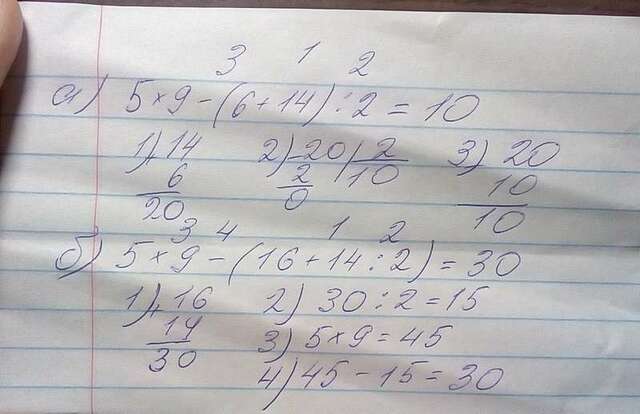 3 1 2
а) 5×9-(6+14):2=10
1) +14 2) -20|2 3) 20
6 2 10 10
20 0 10
3 4 1 2
б) 5×9-(16+14:2)=30
1) +16 2) 30:2=15
14 3) 5×9=45
30 4) 45-15=30